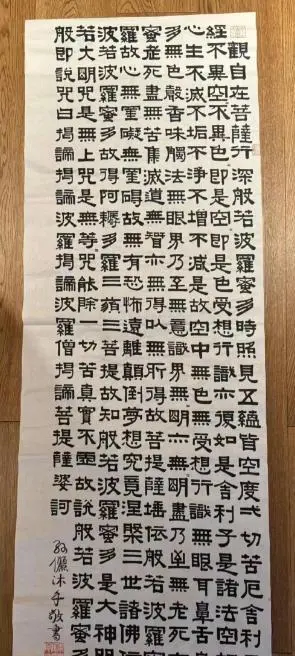 般若波羅蜜多心經
觀自在菩薩行深般若波羅蜜多時照見五蘊皆空度弌切苦厄舍利
不異空不異色即是空即是色受想行識亦復如是舍利子是諸法空
生不滅不垢不淨不增不減是故空中無色無受想行識無眼耳鼻舌
無色聲香味觸法無眼界乃至無意識界無明亦無明盡乃至無老死
老死盡無苦集滅道無智亦無得以無所得故菩提薩埵依般若波羅蜜多
故心無罣礙無罣礙故無有恐怖遠離顛倒夢想究竟涅槃三世諸佛
若波羅蜜多故得阿耨多羅三藐三菩提故知般若波羅蜜多是大神
大明咒是無上咒是無等咒能除一切苦真實不虛故說般若波羅蜜多
即說咒曰揭諦揭諦波羅揭諦波羅僧揭諦菩提薩婆訶
沐手敬書